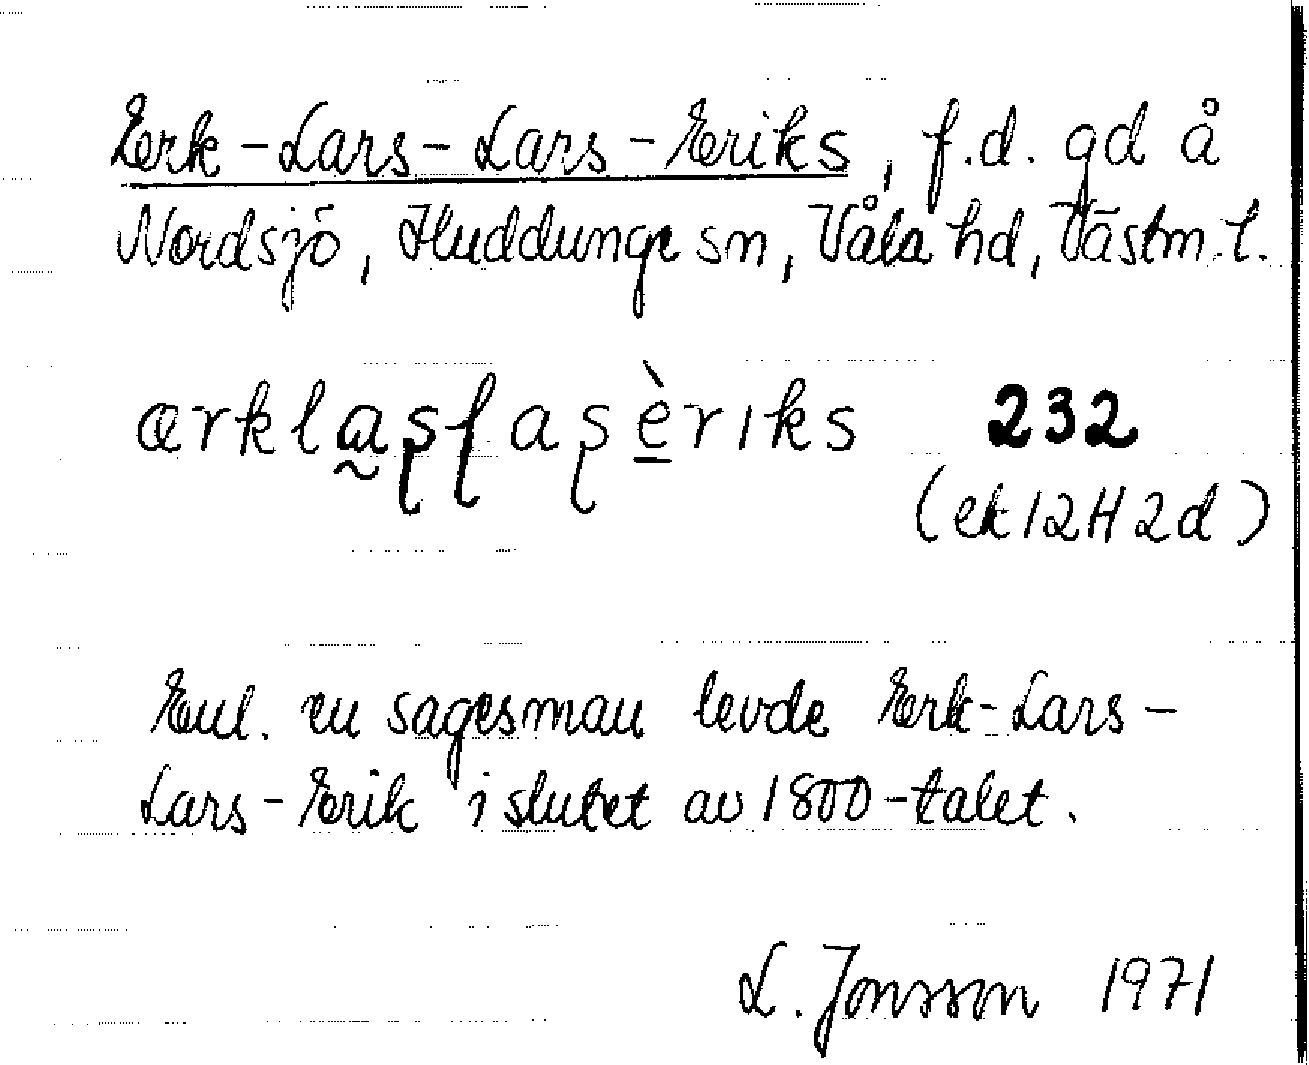 Erk-Lars-Lars-Eriks, f.d. gd å
Nordsjö, Huddunge sn, Våla hd, Västm. l.
ærkla̰ʂɭaʂė̠̀riks 232
(ek 12H2d)
Enl. en sagesman levde Erk-Lars-
Lars-Erik i slutet av 1800-talet.
L. Jonsson 1971